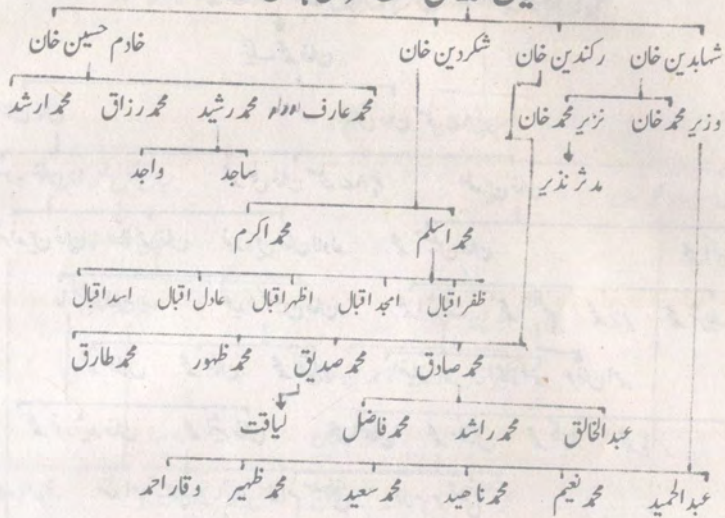 شہابدین خان رکندین خان شکردین خان خادم حسین خان
وزیر محمد خان نزیر محمد خان محمد عارف محمد رشید محمد رزاق محمد ارشد
مدثر نذیر ساجد واجد
محمد اسلم محمد اکرم
ظفر اقبال امجد اقبال اظہر اقبال عادل اقبال اسد اقبال
محمد صادق محمد صدیق محمد ظہور محمد طارق
عبدالخالق محمد راشد محمد فاضل لیاقت
عبدالحمید محمد نعیم محمد ناھید محمد سعید محمد ظہیر وقار احمد